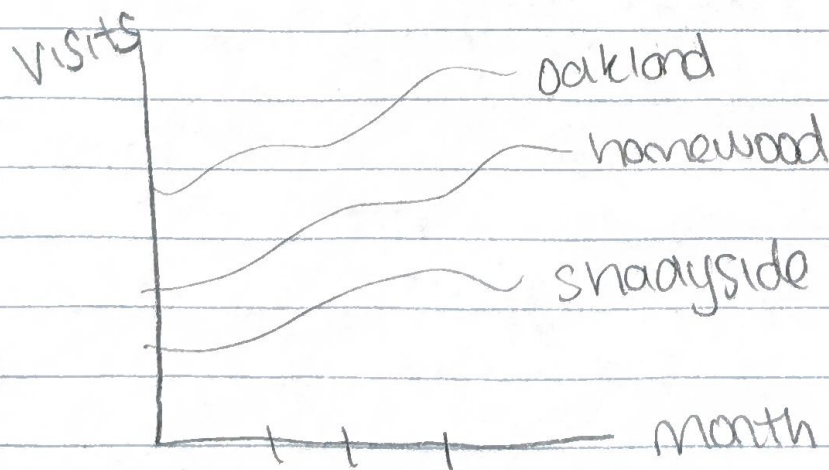 visits
oakland
homewood
shadyside
month